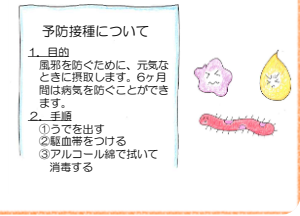 予防接種について
1．目的
風邪を防ぐために、元気な
ときに摂取します。6ヶ月
間は病気を防ぐことができ
ます。
2．手順
①うでを出す
②駆血帯をつける
③アルコール綿で拭いて
消毒する